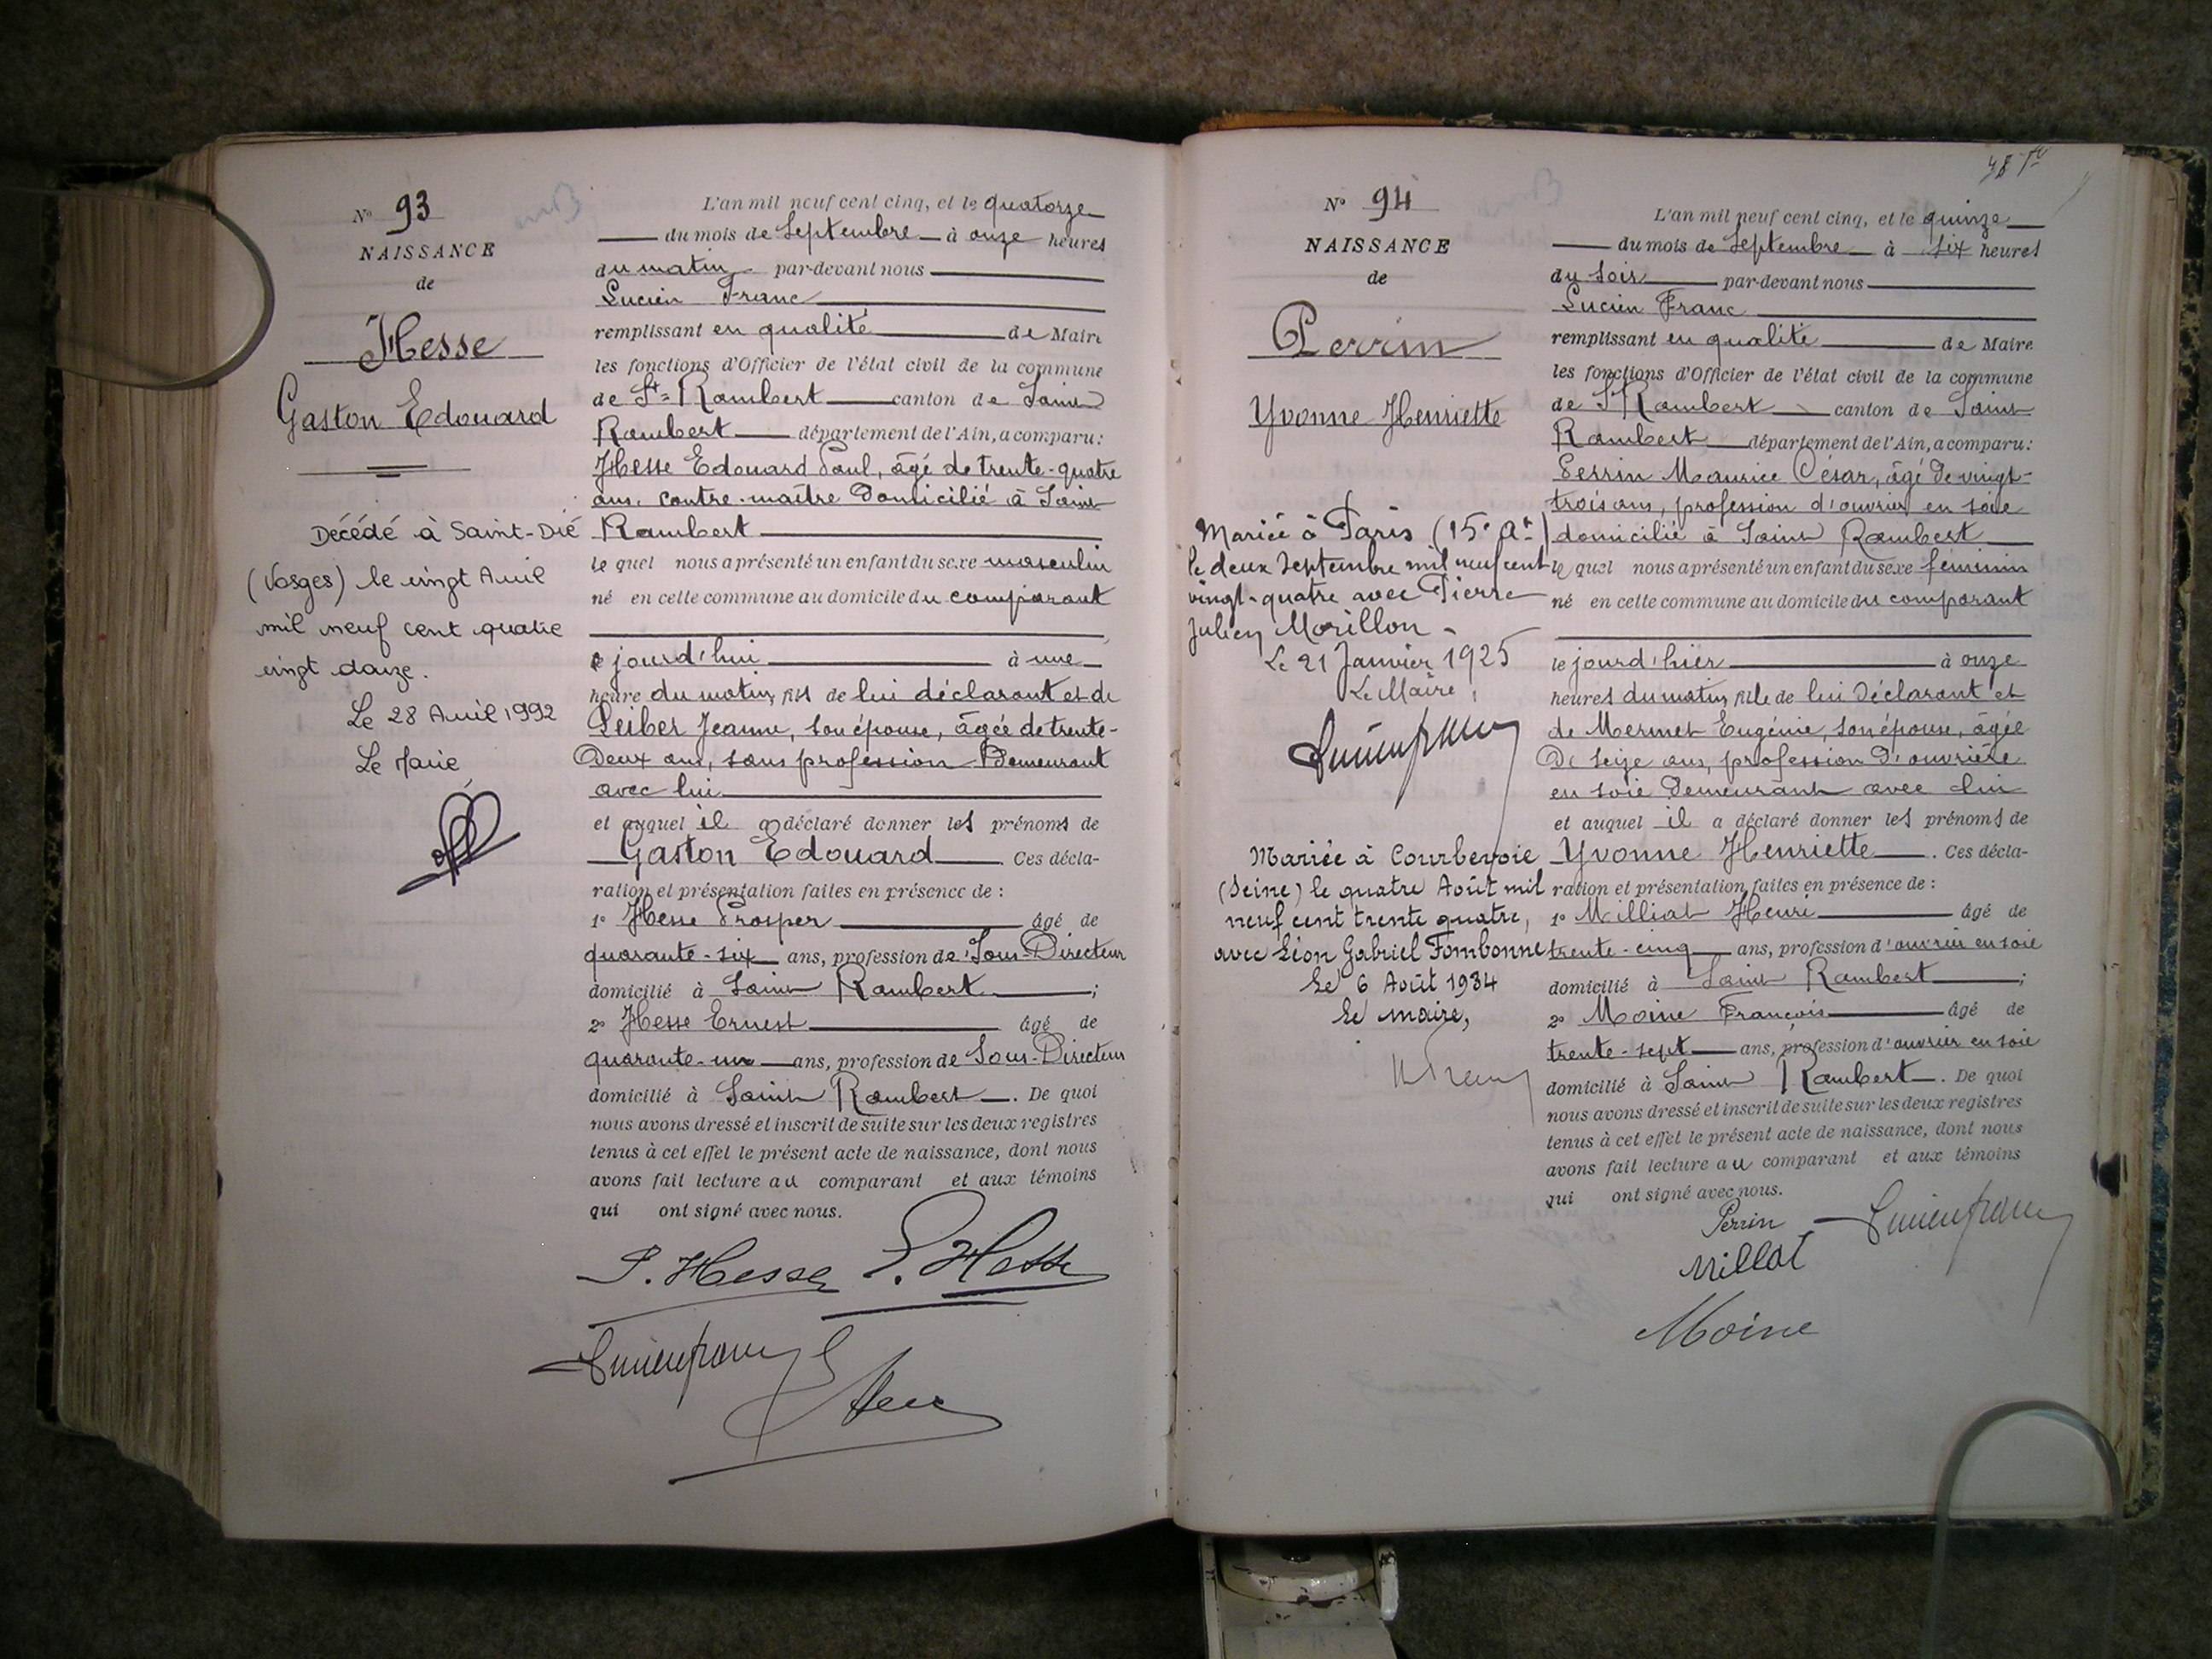 N° 93
NAISSANCE
de
Hesse
Gaston Edouard
Décédé à Saint-Dié
(Vosges) le vingt Avril
mil neuf cent quatre
vingt douze.
Le 28 Avril 1992
Le Maire
L'an mil neuf cent cinq, et le quatorze
du mois de Septembre à onze heures
du matin par-devant nous
Lucien Franc
remplissant en qualité de Maire
les fonctions d'Officier de l'état civil de la commune
de St= Rambert canton de Saint
Rambert département de l'Ain, a comparu:
Hesse Edouard Paul, âgé de trente-quatre
ans, contre-maître domicilié à Saint
Rambert
le quel nous a présenté un enfant du sexe masculin
né en cette commune au domicile du comparant
ce jourd'hui à une
heure du matin, fils de lui déclarant et de
Leiber Jeanne, son épouse, âgée de trente-
Deux ans, sans profession Demeurant
avec lui
et auquel il a déclaré donner les prénoms de
Gaston Edouard. Ces décla-
ration et présentation faites en présence de :
1° Hesse Prosper âgé de
quarante-six ans, profession de Sous-Directeur
domicilié à Saint Rambert ;
2° Hesse Ernest âgé de
quarante-un ans, profession de Sous-Directeur
domicilié à Saint Rambert. De quoi
nous avons dressé et inscrit de suite sur les deux registres
tenus à cet effet le présent acte de naissance, dont nous
avons fait lecture au comparant et aux témoins
qui ont signé avec nous.
P. Hesse E. Hesse
Lucien franc
N° 94
NAISSANCE
de
Perrin
Yvonne Henriette
Mariée à Paris (15e At)
le deux Septembre mil neuf cent
vingt-quatre avec Pierre
Julien Morillon -
Le 21 Janvier 1925
Le Maire,
Lucien franc
Mariée à Courbevoie
(Seine) le quatre Août mil
neuf cent trente quatre,
avec Léon Gabriel Fombonne
Le 6 Août 1934
Le maire,
L'an mil neuf cent cinq, et le quinze
du mois de Septembre à six heures
du soir par-devant nous
Lucien Franc
remplissant en qualité de Maire
les fonctions d'Officier de l'état civil de la commune
de St Rambert canton de Saint
Rambert département de l'Ain, a comparu:
Perrin Maurice César, âgé de vingt-
trois ans, profession d'ouvrier en soie
domicilié à Saint Rambert
le quel nous a présenté un enfant du sexe féminin
né en cette commune au domicile du comparant
le jourd'hier à onze
heures du matin, fille de lui Déclarant et
de Mermet Eugénie, son épouse, âgée
De seize ans, profession D'ouvrière
en soie Demeurant avec lui
et auquel il a déclaré donner les prénoms de
Yvonne Henriette. Ces décla-
ration et présentation faites en présence de :
1° Milliat Henri âgé de
trente-cinq ans, profession d'ouvrier en soie
domicilié à Saint Rambert ;
2° Moine François âgé de
trente-sept ans, profession d'ouvrier en soie
domicilié à Saint Rambert. De quoi
nous avons dressé et inscrit de suite sur les deux registres
tenus à cet effet le présent acte de naissance, dont nous
avons fait lecture au comparant et aux témoins
qui ont signé avec nous.
Perrin Lucien franc
Millat
Moine